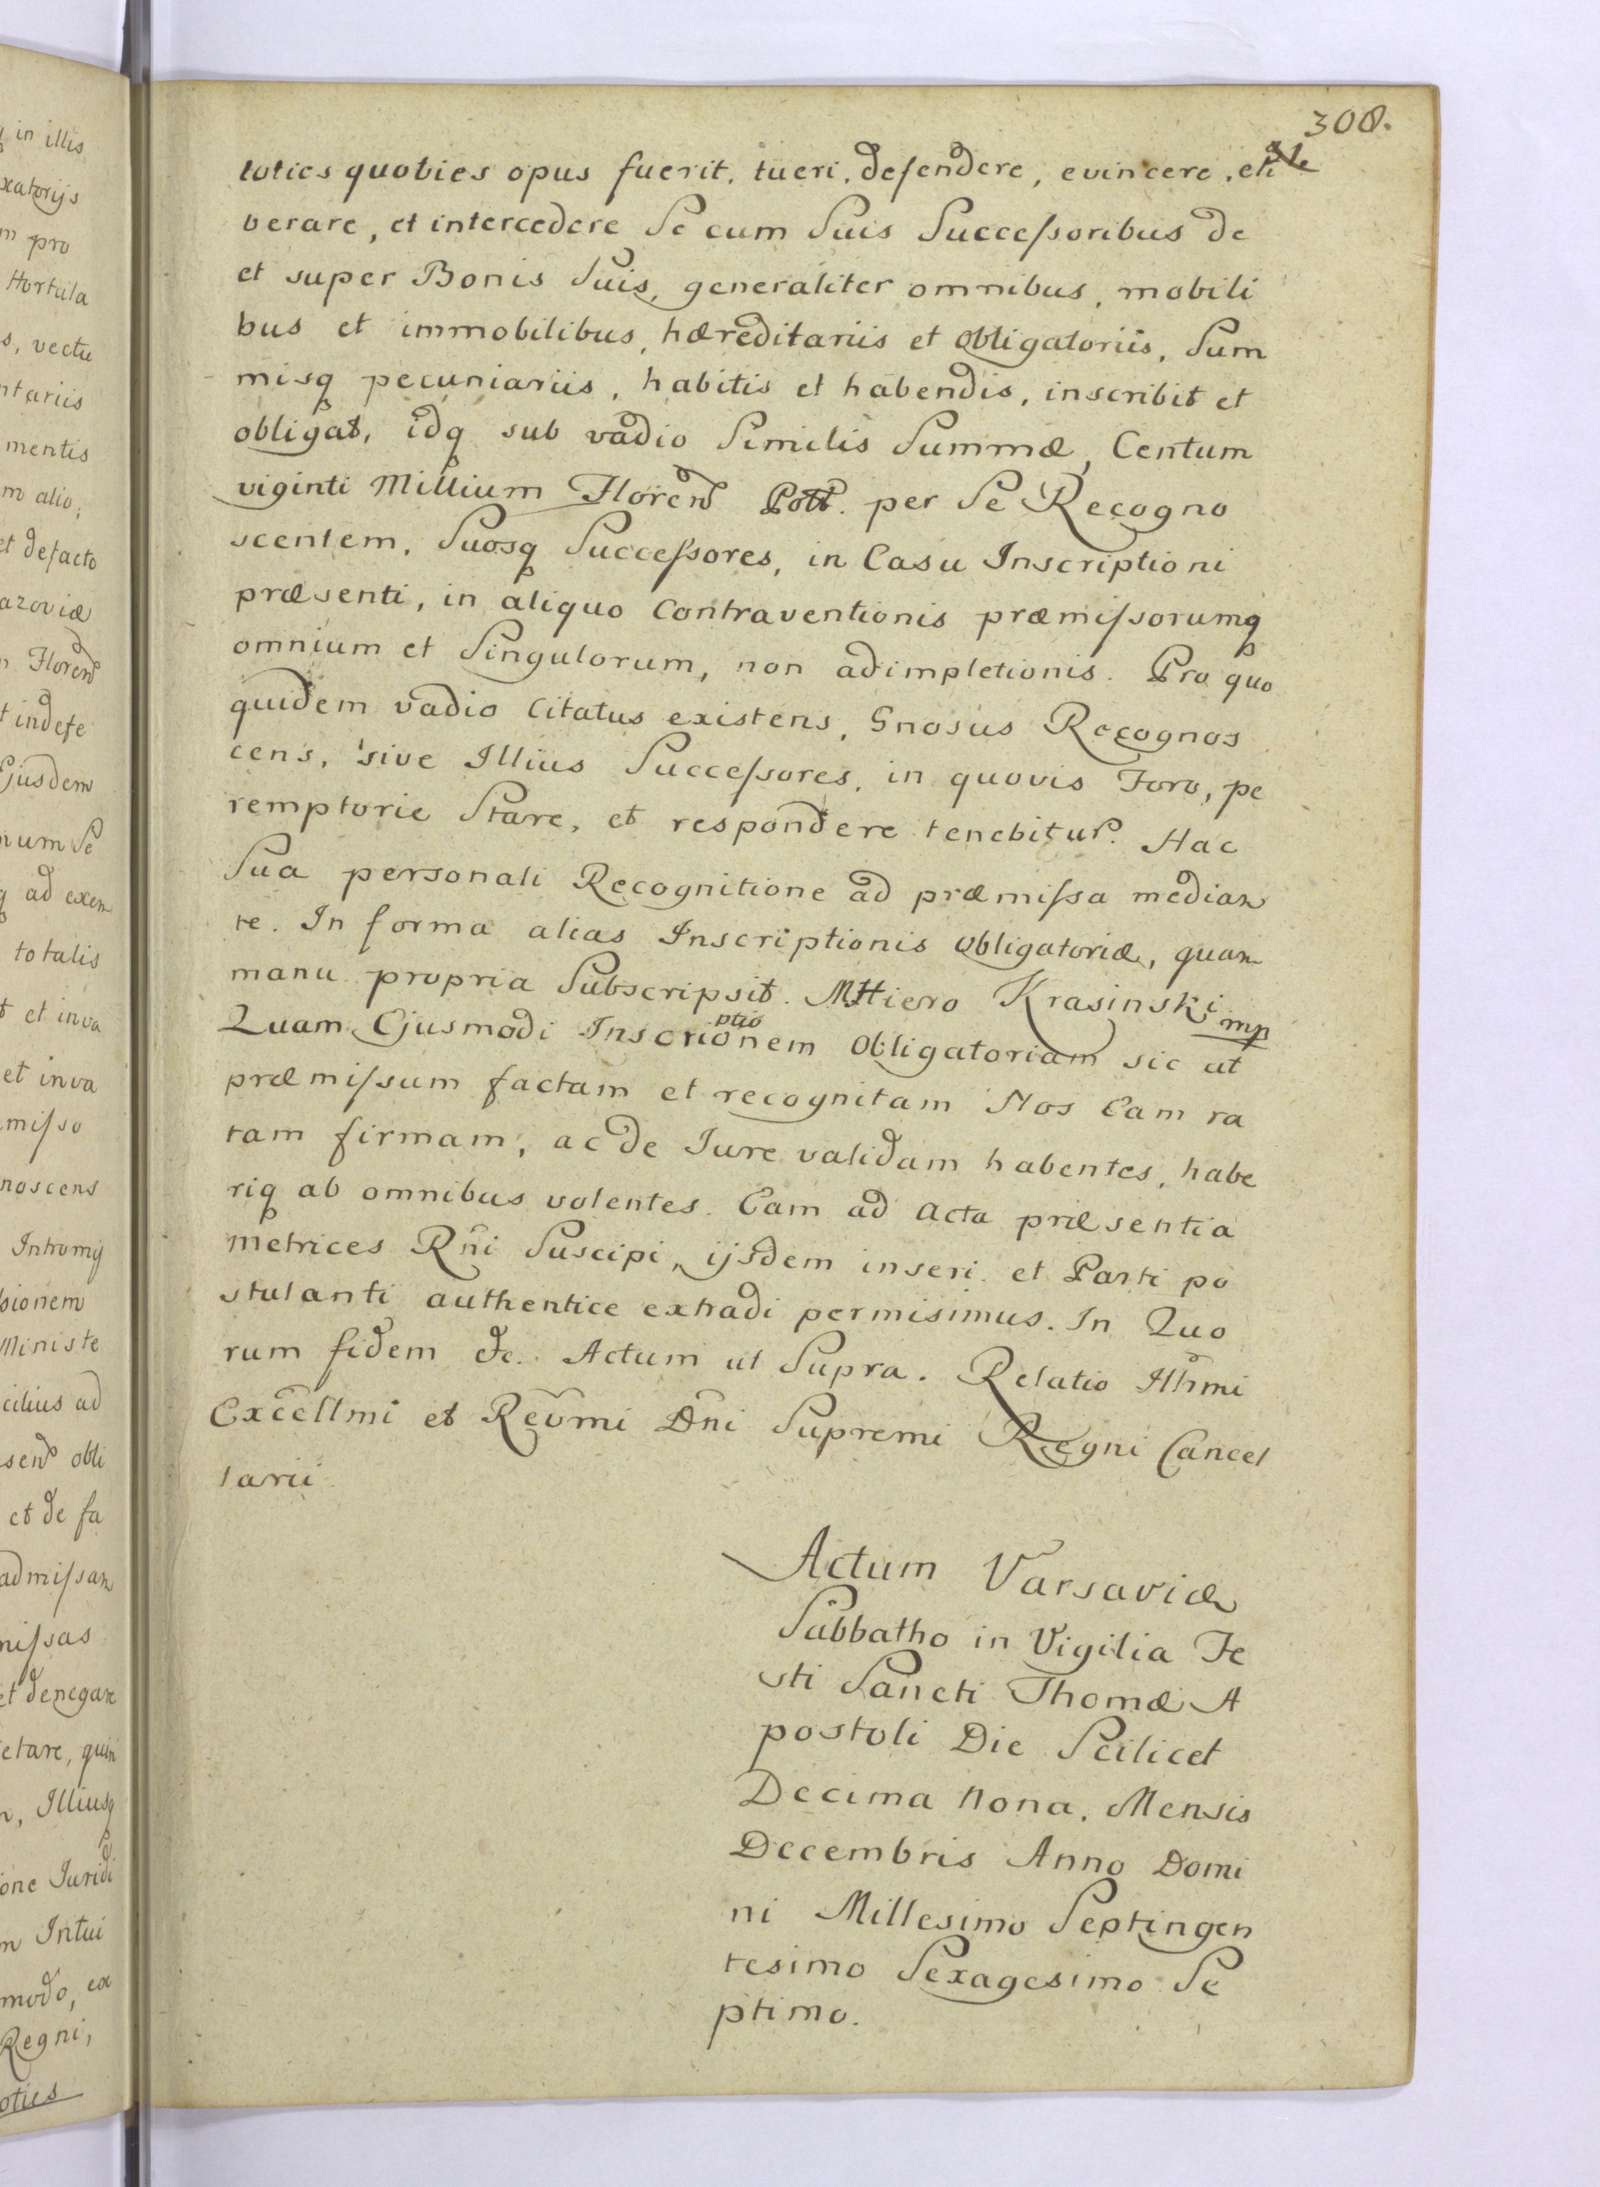 308.
toties quoties opus fuerit, tueri, defendere, evincere, eli
berare, et intercedere Se cum Suis Successoribus de
et super Bonis Suis, generaliter omnibus, mobili
bus et immobilibus, hæreditariis et obligatoriis, Sum
misq pecuniariis, habitis et habendis, inscribit et
obligat, idq sub vadio Similis Summæ, Centum
viginti Millium Floren Poll. per Se Recogno
scentem, Suosq Successores, in Casu Inscriptioni
præsenti, in aliquo Contraventionis præmissorumq
omnium et Singulorum, non adimpletionis. Pro quo
quidem vadio Citatus existens, Gnosus Recognos
cens, sive Illius Successores, in quovis Foro, pe
remptorie Stare, et respondere tenebitur. Hac
Sua personali Recognitione ad præmissa median
te. In forma alias Inscriptionis obligatoriæ, quam
manu propria Subscripsit. MHiero Krasinski mp
Quam Ejusmodi Inscriptionem Obligatoriam sic ut
præmissum factam et recognitam Nos Eam ra
tam firmam, ac de Jure validam habentes, habe
riq ab omnibus volentes. Eam ad Acta præsentia
Metrices Rni Suscipi, ijsdem inseri et Parti po
stulanti authentice extradi permisimus. In Quo
rum fidem &c. Actum ut Supra. Relatio Illmi
Excellmi et Revmi Dni Supremi Regni Cancel
larii
Actum Varsaviæ
Sabbatho in Vigilia Fe
sti Sancti Thomæ A
postoli Die Scilicet
Decima Nona, Mensis
Decembris Anno Domi
ni Millesimo Septingen
tesimo Sexagesimo Se
ptimo.